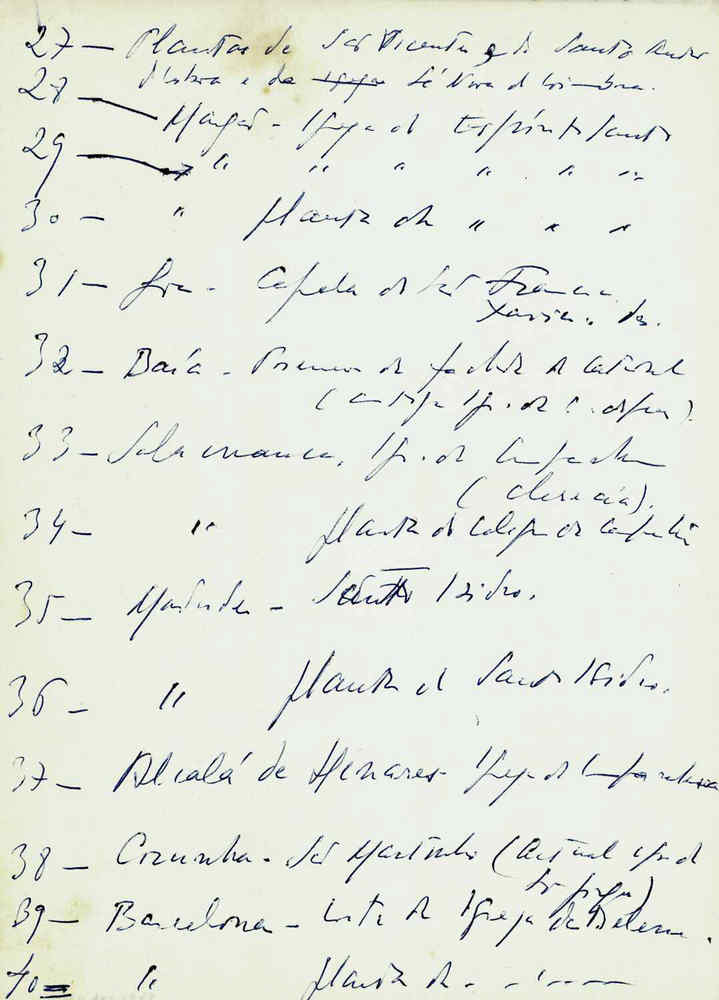 27 — Plantas de São Vicente e de Santo Andre
Lisboa e da Sé Nova de Coimbra.
28 — Igreja do Espírito Santo
29 — " " " " " "
30 — " planta da " " "
31 — Goa - Capela de São Francisco
Xavier.
32 — Baía - Pormenor da fachada da Catedral
(antiga Igr. da C. de Jesus).
33 — Salamanca, Igr. da Companhia
(Clerecía).
34 — " planta do Colégio da Companhia
35 — Madrid - Santo Isidro.
36 — " planta de Santo Isidro.
37 — Alcalá de Henares - Igreja da Companhia
38 — Corunha - São Martinho (actual igr. de
)
39 — Barcelona - Corte da Igreja de Belem.
40 = " planta da - - - - - -